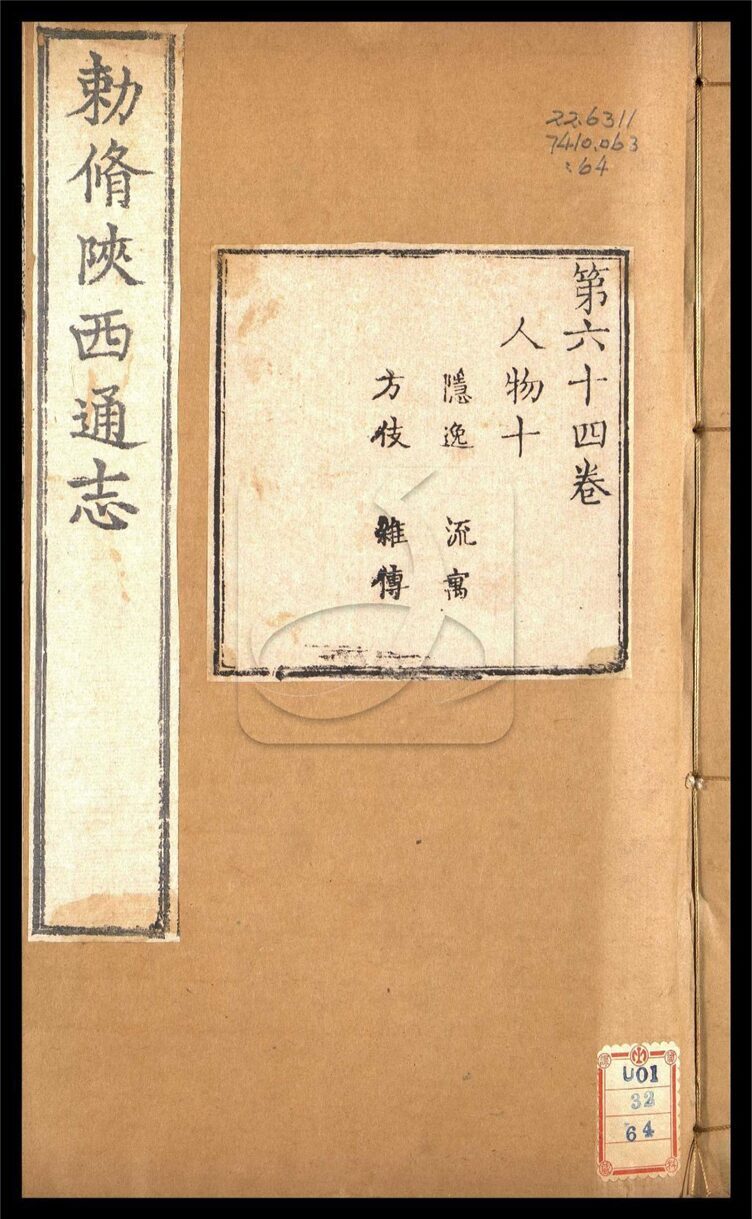 勅脩陝西通志
第六十四卷
人物十
隱逸 流寓
方伎 雜傳
22.6311
7410.063
:64
U01
32
64